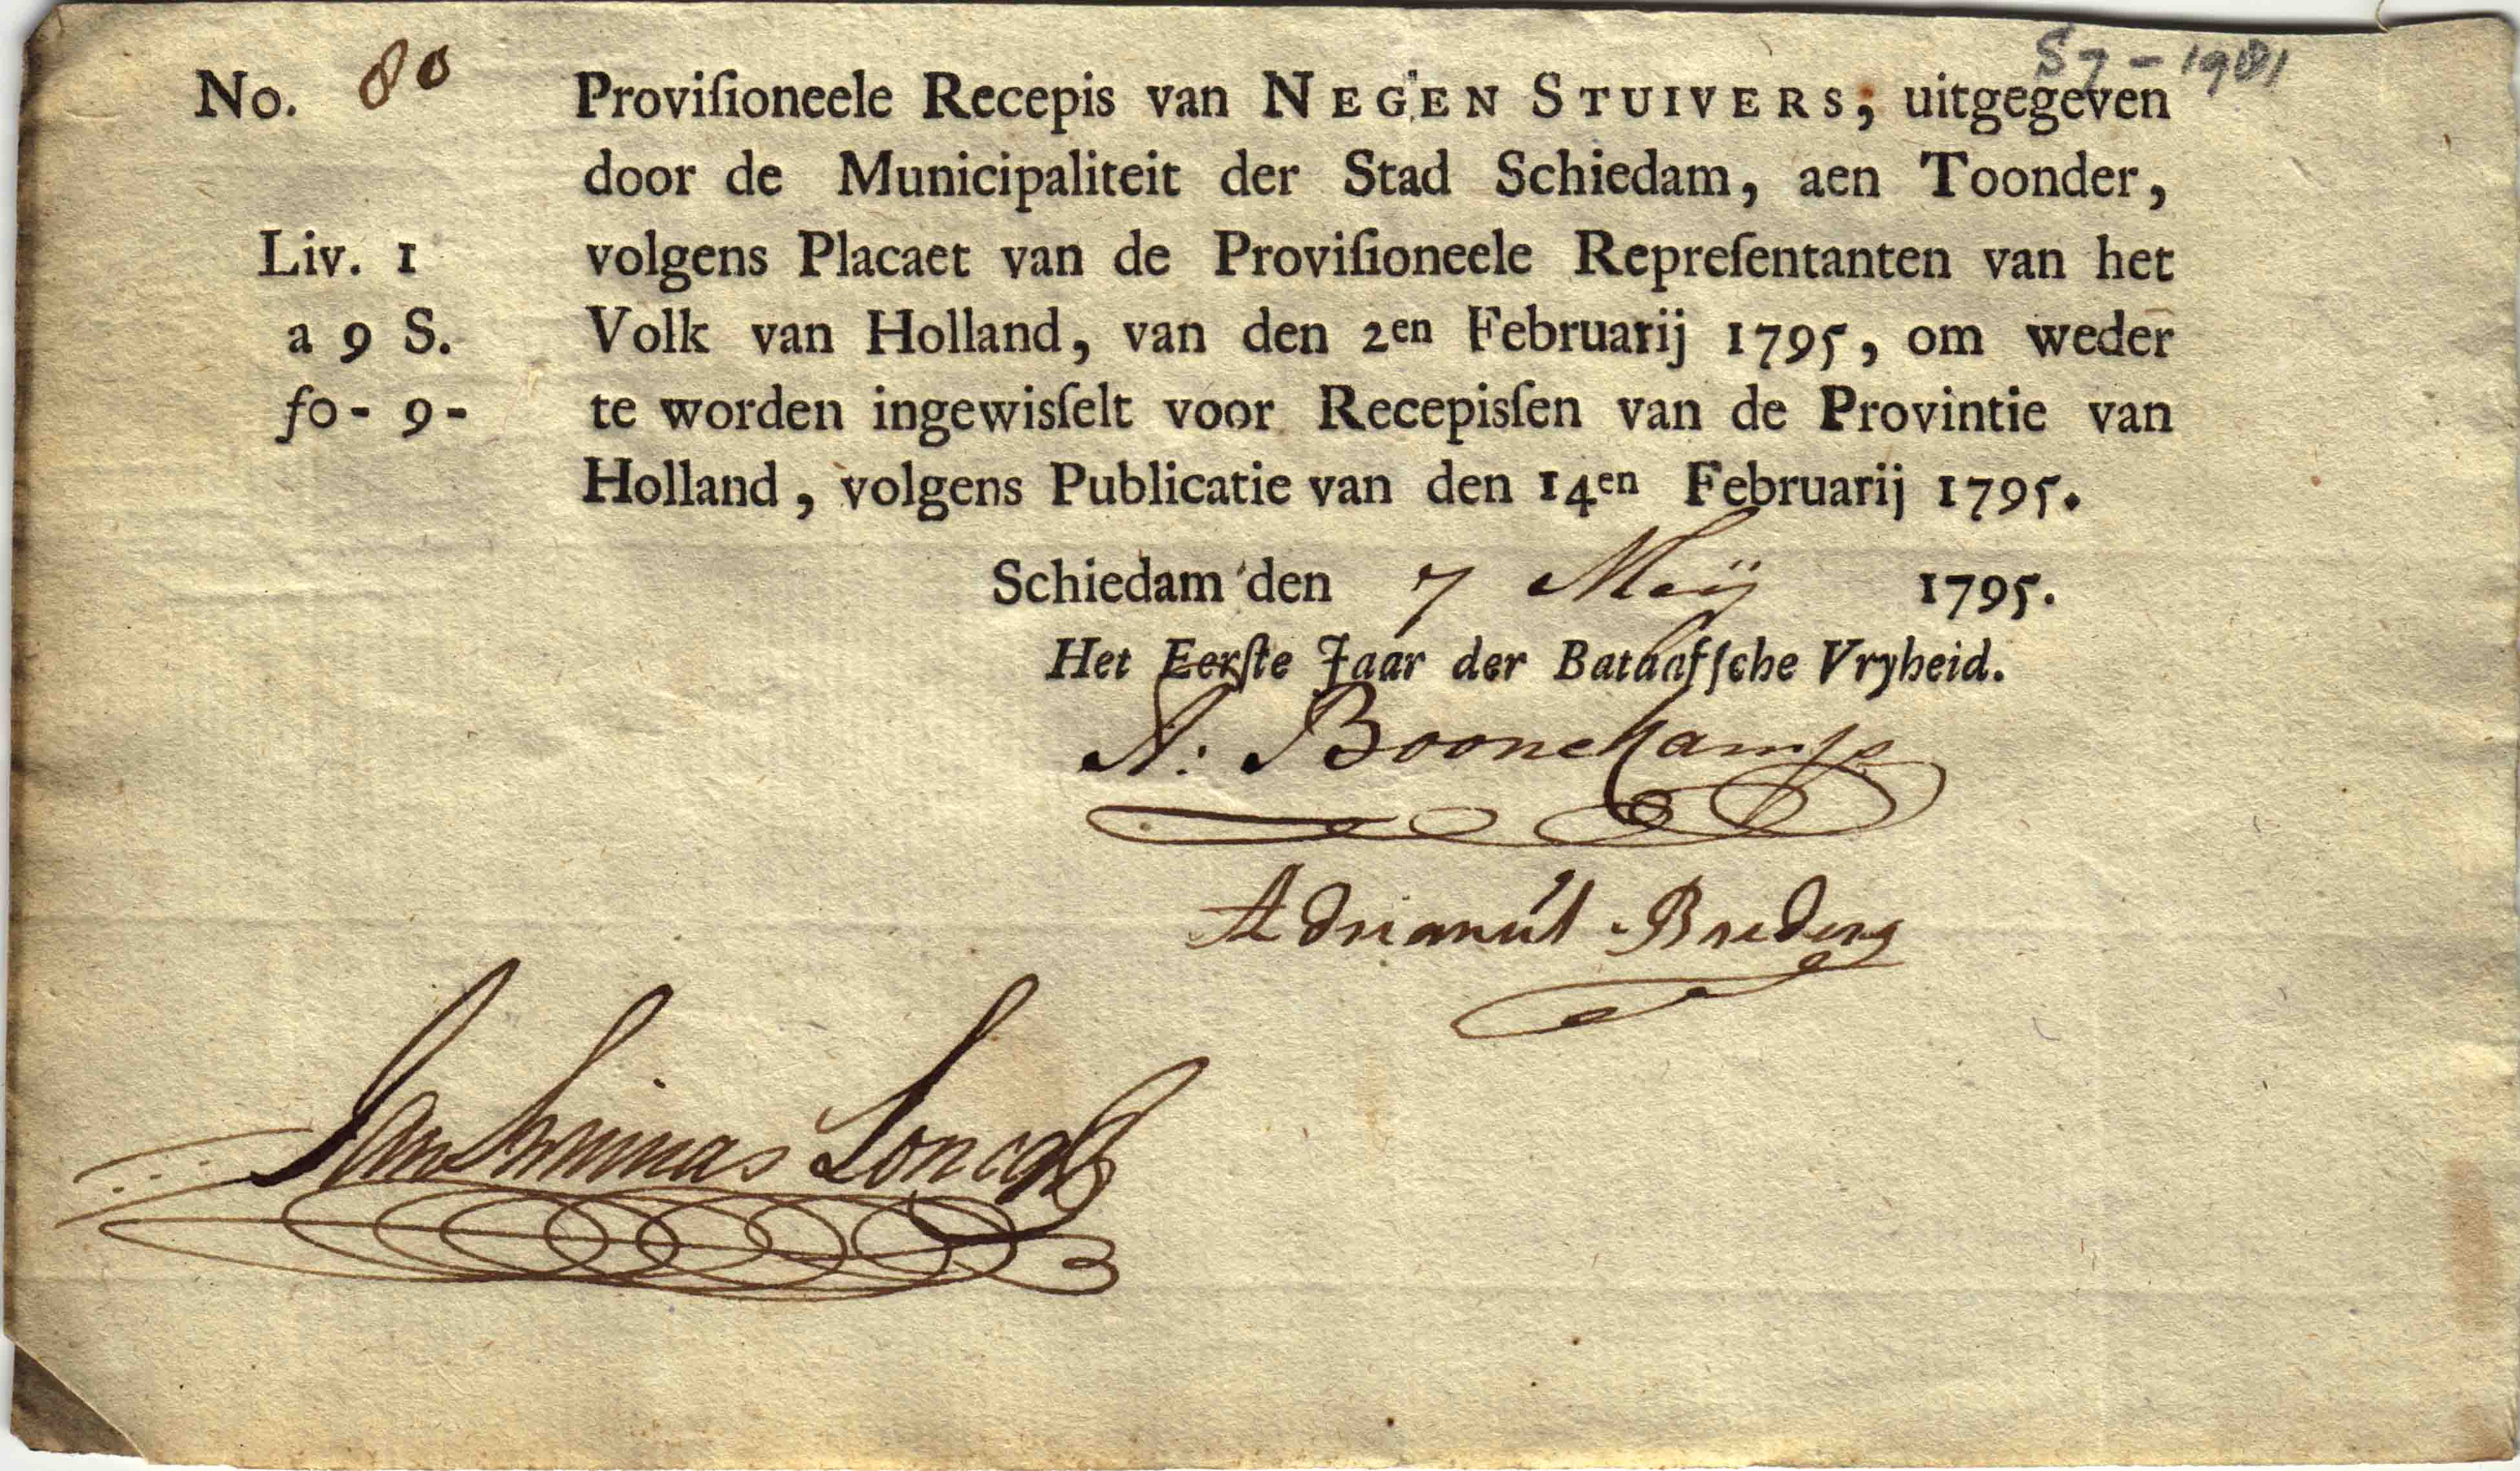 S7-1981
No. 80 Proviſioneele Recepis van NEGEN STUIVERS, uitgegeven
door de Municipaliteit der Stad Schiedam, aen Toonder,
Liv. 1 volgens Placaet van de Proviſioneele Repreſentanten van het
a 9 S. Volk van Holland, van den 2en Februarij 1795, om weder
fo- 9- te worden ingewisſelt voor Recepisſen van de Provintie van
Holland, volgens Publicatie van den 14en Februarij 1795.
Schiedam den 7 Meÿ 1795.
Het Eerſte Jaar der Bataafſche Vryheid.
A: Boonekamp
Adrianus
Jan